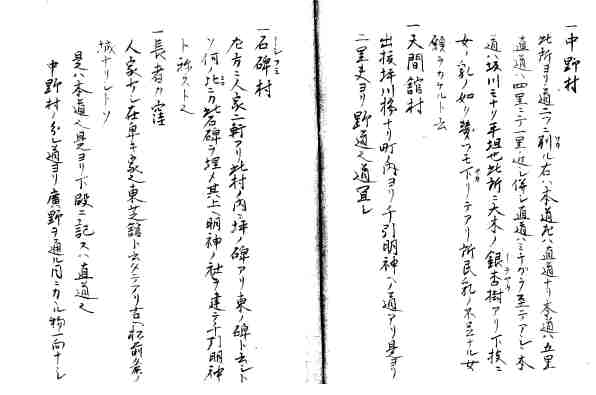 一中野村
此所ヨリ道二ツニ別ル右ハ本道左ハ直道ナリ本道ハ五里
直道ハ四里ニテ一里近シ併シ直道ハミチガラ至テアシ本
道ハ坂川ミナリ平坦也此所ニ大木ノ銀杏樹アリ下枝ニ
女ノ乳ノ如ク夢ツモ下リテアリ所民乳ノ不足ナル女
願ヲカケルト云
一天間舘村
出接坪川橋ナリ町ノ内ヨリ千引明神ヘノ道アリ是ヨリ
二里丈ヨリ野道之道宜シ
一石碑村
左方ニ人家二軒アリ此村ノ内ニ坪ノ碑アリ東ノ碑ト云シト
ソ何比ニカ此石碑ヲ埋メ其上ヘ明神ノ社ヲ建テ千引明神
ト祢ストヘ
一長者カ窪
人家ナシ在郷キ家之東芝舘ト云タテアリ古ヘ松前家ノ
城ナリシトソ
是ハ本道之是ヨリ下殿ニ記スハ直道之
中野村ノ分レ道ヨリ廣野ヲ通ル間ニカル物一向ナシ